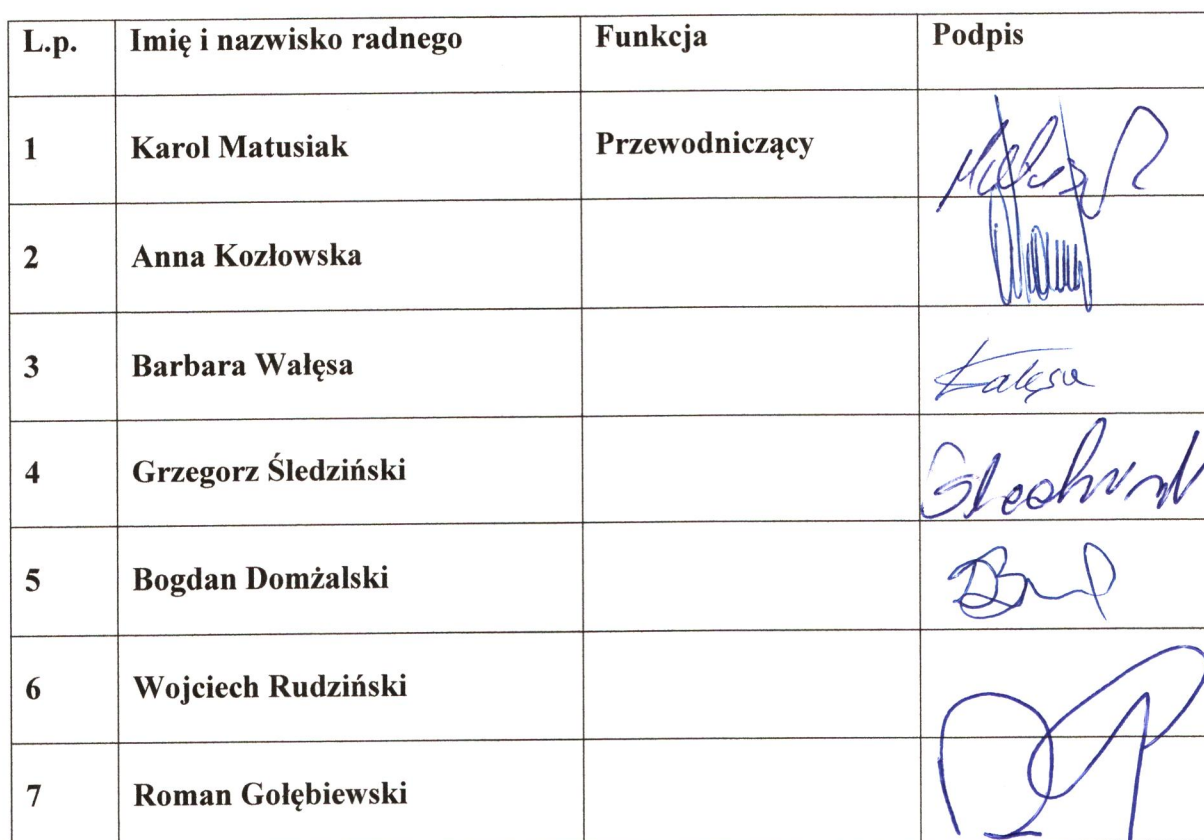 L.p. Imię i nazwisko radnego Funkcja Podpis
1 Karol Matusiak Przewodniczący
2 Anna Kozłowska
3 Barbara Wałęsa
4 Grzegorz Śledziński
5 Bogdan Domżalski
6 Wojciech Rudziński
7 Roman Gołębiewski